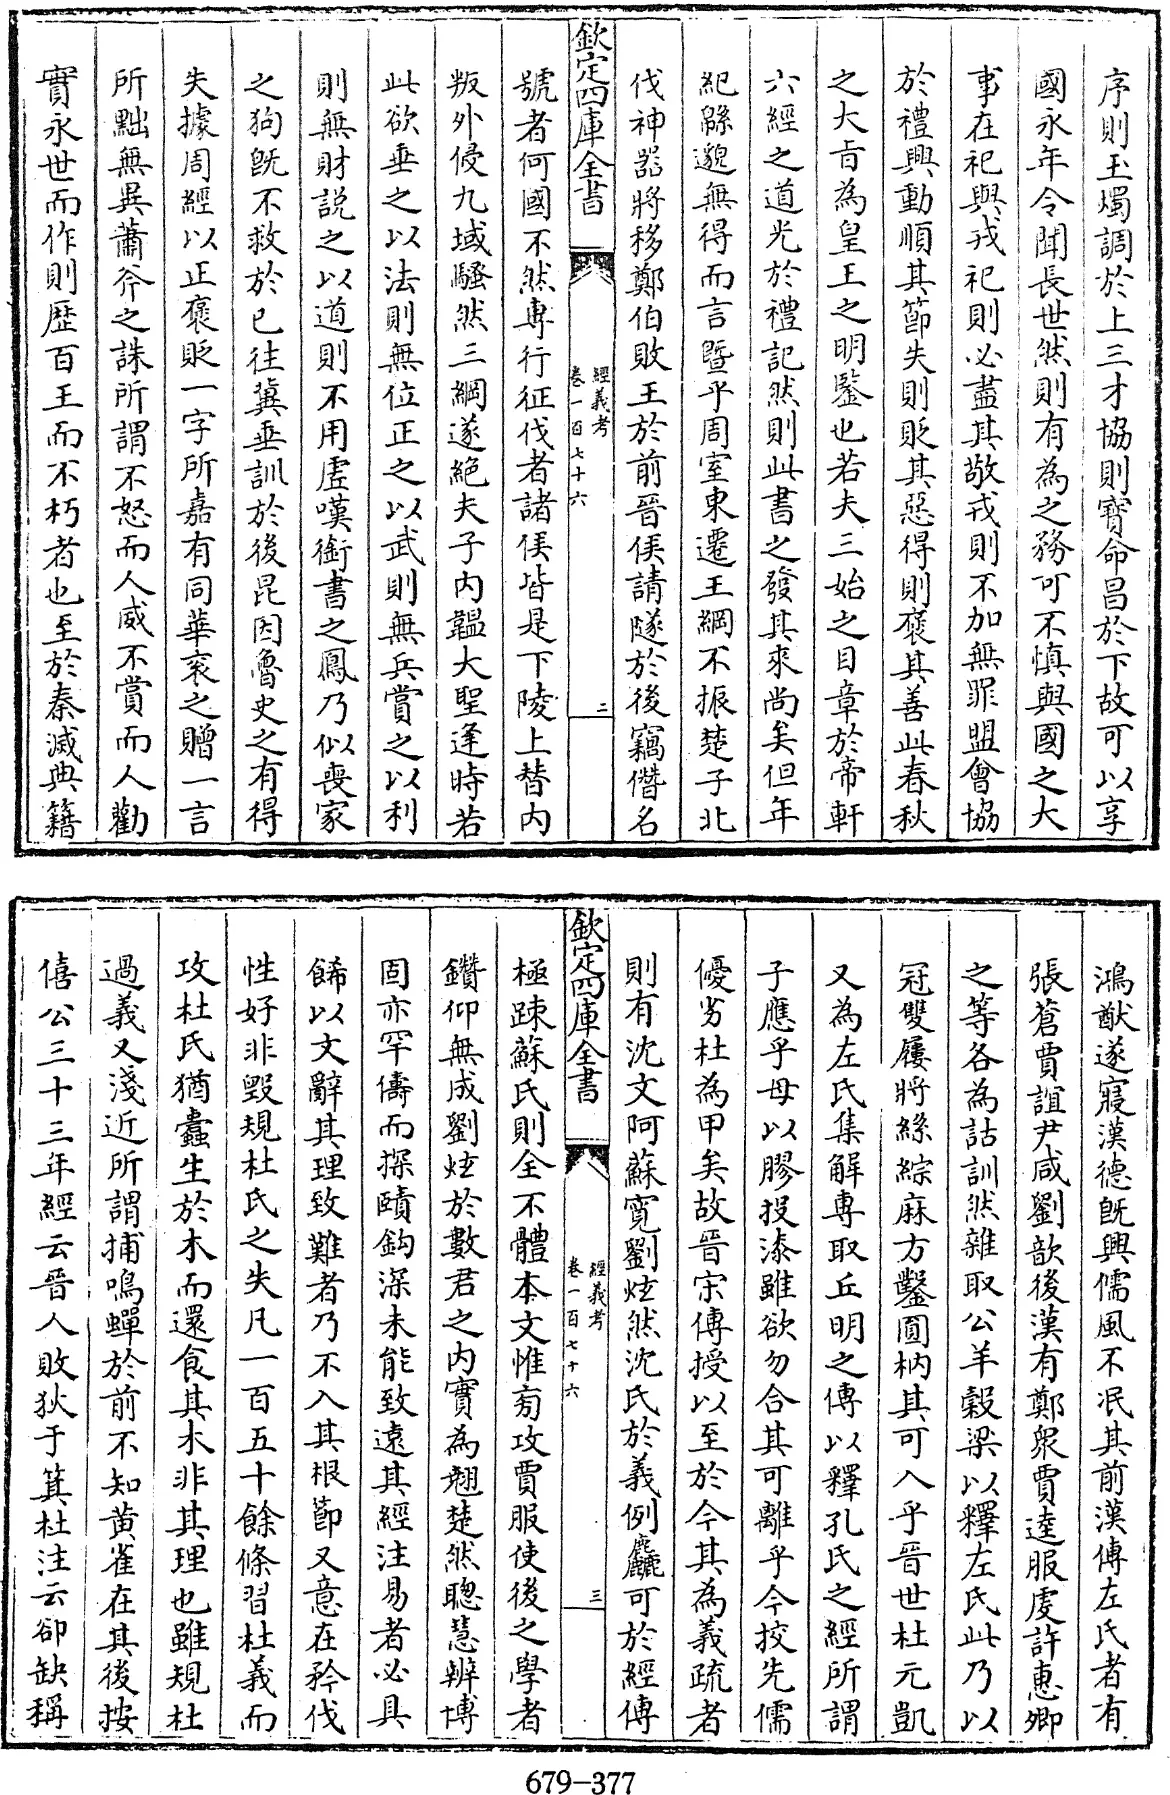 序則玉燭調於上三才協則寳命昌於下故可以享
國永年令聞長世然則有為之務可不慎與國之大
事在祀與戎祀則必盡其敬戎則不加無罪盟會協
於禮興動順其節失則貶其惡得則褒其善此春秋
之大㫖為皇王之明鑒也若夫三始之目章於帝軒
六經之道光於禮記然則此書之發其來尚矣但年
紀緜邈無得而言暨乎周室東遷王綱不振楚子北
伐神器將移鄭伯敗王於前晉侯請隧於後竊僭名
欽定四庫全書
經義考
卷一百七十六
二
號者何國不然專行征伐者諸侯皆是下陵上替内
叛外侵九域騷然三綱遂絕夫子内韞大聖逢時若
此欲垂之以法則無位正之以武則無兵賞之以利
則無財説之以道則不用虛嘆銜書之鳳乃似喪家
之狗既不救於已往冀垂訓於後昆因魯史之有得
失據周經以正褒貶一字所嘉有同華衮之贈一言
所黜無異蕭斧之誅所謂不怒而人威不賞而人勸
實永世而作則歴百王而不朽者也至於秦滅典籍
鴻猷遂寢漢德既興儒風不泯其前漢傳左氏者有
張蒼賈誼尹咸劉歆後漢有鄭衆賈逵服虔許惠卿
之等各為詁訓然雜取公羊穀梁以釋左氏此乃以
冠雙屨將絲綜麻方鑿圓枘其可入乎晉世杜元凱
又為左氏集解專取丘明之傳以釋孔氏之經所謂
子應乎母以膠投漆雖欲勿合其可離乎今挍先儒
優劣杜為甲矣故晉宋傳授以至於今其為義疏者
則有沈文阿蘇寛劉炫然沈氏於義例麤可於經傳
欽定四庫全書
經義考
卷一百七十六
三
極疎蘇氏則全不體本文惟旁攻賈服使後之學者
鑽仰無成劉炫於數君之内實為翹楚然聰慧辨博
固亦罕儔而探賾鈎深未能致遠其經注易者必具
餙以文辭其理致難者乃不入其根節又意在矜伐
性好非毀規杜氏之失凡一百五十餘條習杜義而
攻杜氏猶蠹生於木而還食其木非其理也雖規杜
過義又淺近所謂捕鳴蟬於前不知黄雀在其後按
僖公三十三年經云晉人敗狄于箕杜注云郤缺稱
679-377